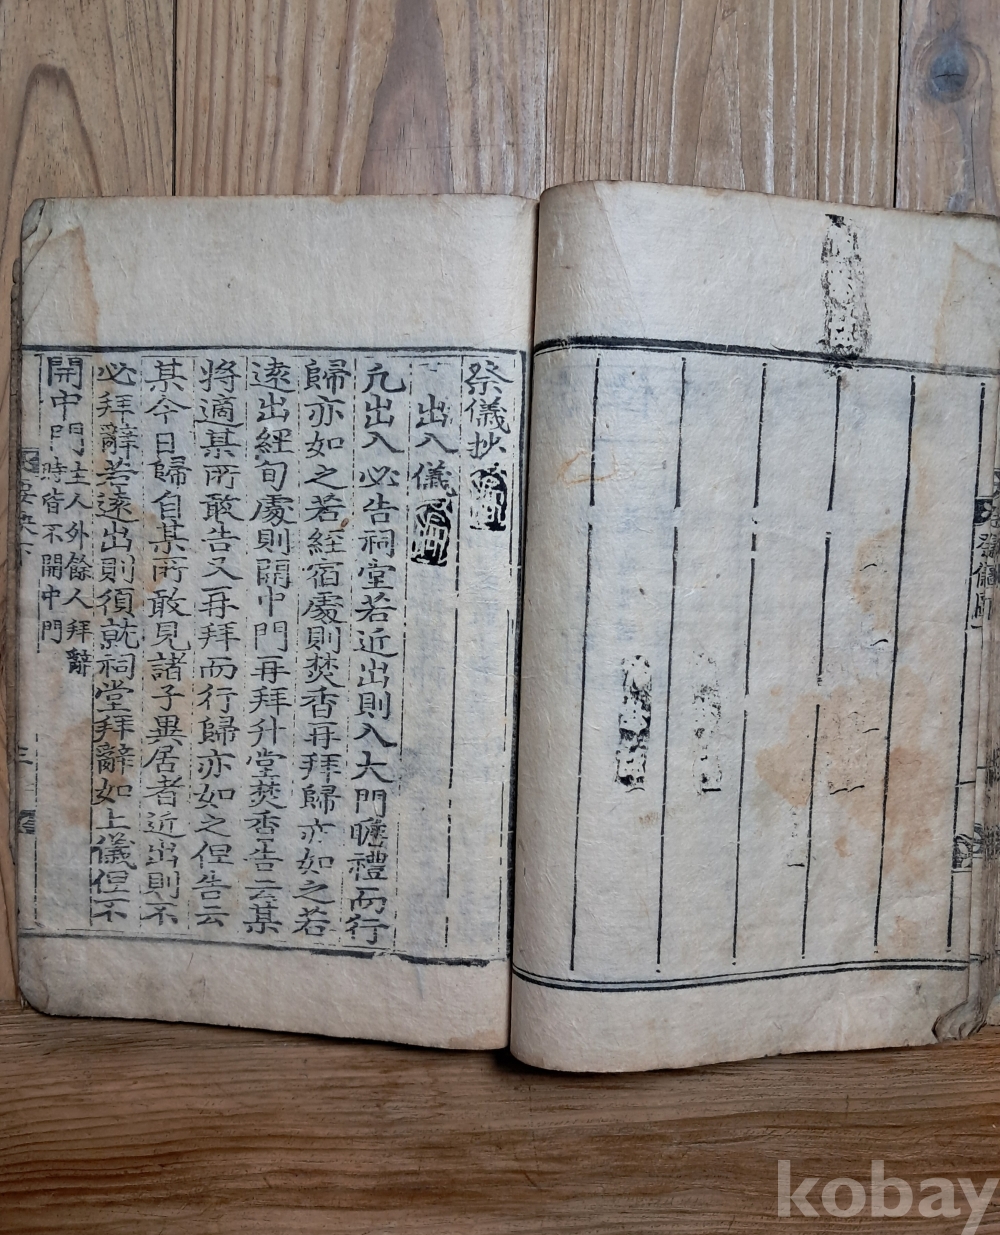 祭儀抄
出入儀
凡出入必告祠堂若近出則入大門瞻禮而行
歸亦如之若經宿處則焚香再拜歸亦如之若
遠出經旬處則開中門再拜升堂焚香告云某
將適某所敢告又再拜而行歸亦如之但告云
某今日歸自某所敢見諸子異居者近出則不
必拜辭若遠出則須就祠堂拜辭如上儀但不
開中門主人外餘人拜辭
時皆不開中門
要訣下
kobay